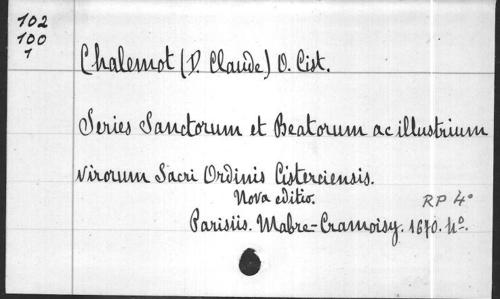 102
100
1
Chalemot (D. Claude) O. Cist.
Series Sanctorum et Beatorum ac illustrium
virorum Sacri Ordinis Cisterciensis.
Nova editio.
RP 4°
Parisiis. Mabre-Cramoisy. 1670. 4°.